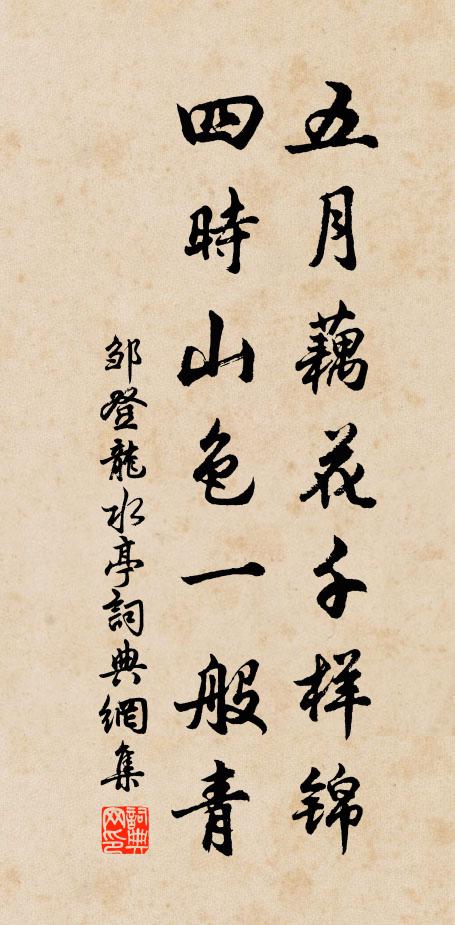 五月藕花千样錦
四時山色一般青
邹登龍水亭詞典網集
詞典网印